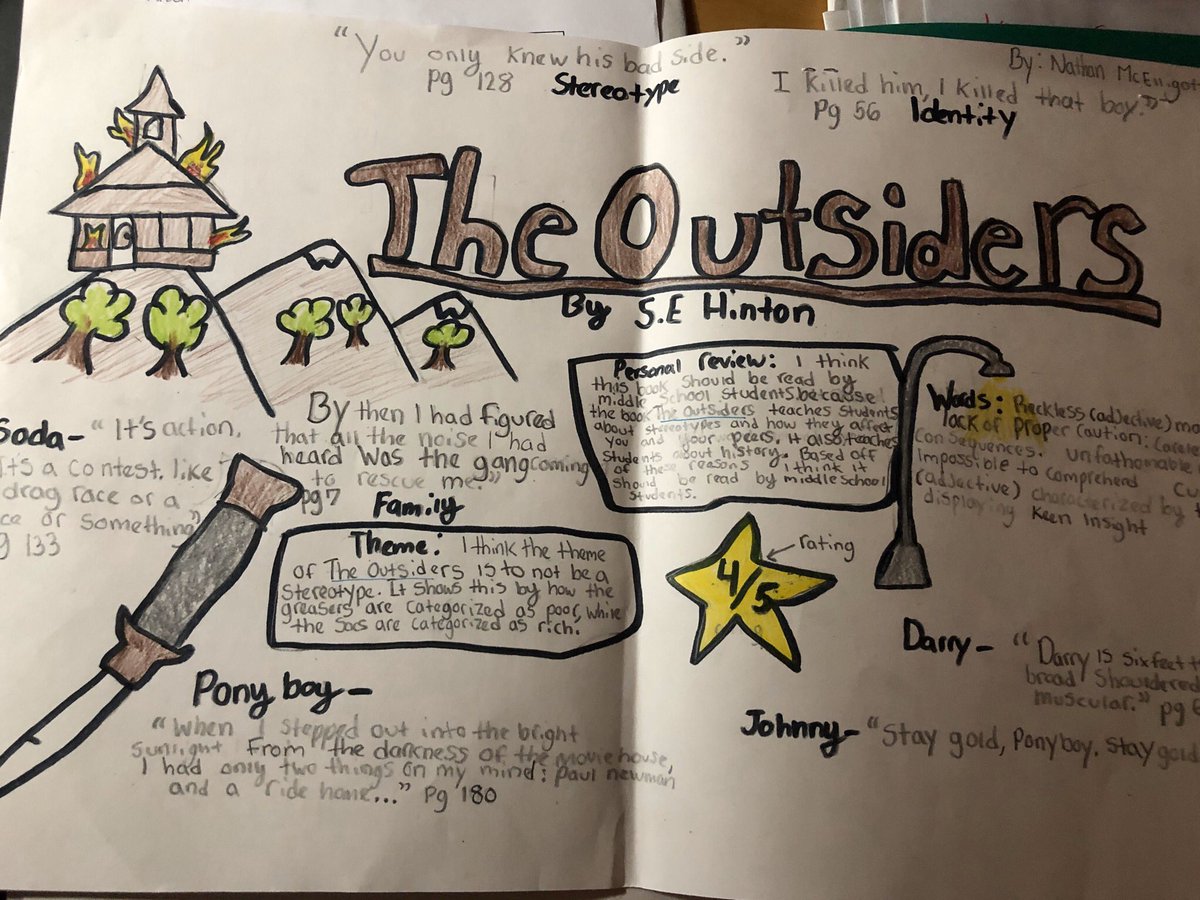 "You only knew his bad side."
pg 128 Stereotype
By: Nathan
I killed him, I killed that boy."
pg 56 Identity
The Outsiders
By S.E Hinton
Soda- "It's action.
It's a contest. like
drag race or a
or something"
133
By then I had figured
that all the noise I had
heard was the gang coming
to rescue me."
pg7 Family
Theme: I think the theme
of The Outsiders is to not be a
stereotype. It shows this by how the
greasers are categorized as poor, while
the Socs are categorized as rich.
Personal review: I think
this book should be read by
middle School students because
the book The Outsiders teaches students
about stereotypes and how they affect
you and your peers. It also teaches
students about history. Based off
of these reasons I think it
should be read by middle school
students.
Words: Reckless (adjective)
lack of proper caution:
consequences. Unfathomable
impossible to comprehend
(adjective) characterized by
displaying keen insight
4/5
rating
Pony boy-
"When I stepped out into the bright
sunlight From the darkness of the movie house,
I had only two things on my mind: Paul newman
and a ride home..." pg 180
Darry- "Darry is six feet
broad shouldered
muscular." pg
Johnny- "Stay gold, Ponyboy. Stay gold